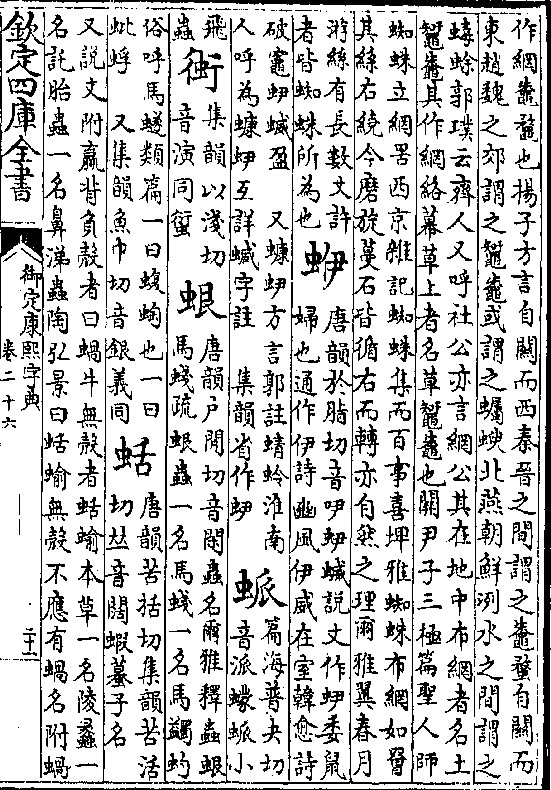 作網鼄蝥也揚子方言自關而西秦晉之間謂之鼄蝥自關而
東趙魏之郊謂之鼅鼄或謂之蠾蝓北燕朝鮮洌水之間謂之
蝳蜍郭璞云齊人又呼社公亦言網公其在地中布網者名土
鼅鼄其作網絡幕草上者名草鼅鼄也關尹子三極篇聖人師
蜘蛛立網罟西京雜記蜘蛛集而百事喜埤雅蜘蛛布網如罾
其絲右繞今磨旋蔓石皆循右而轉亦自然之理爾雅翼春月
游絲有長數丈許
者皆蜘蛛所為也
蛜
唐韻於脂切音吚蛜蝛說文作蛜委鼠
婦也通作伊詩豳風伊威在室韓愈詩
破竈蛜蝛盈 又蠊蛜方言郭註蜻蛉淮南
人呼為蠊蛜互詳蝛字註 集韻省作蛜
𧊅
篇海普夬切
音派蠓𧊅小
飛
蟲
䘆
集韻以淺切
音演同
蛝
唐韻戶閒切音閒蟲名爾雅釋蟲蛝
馬䗃疏蛝蟲一名馬䗃一名馬蠲蚐
俗呼馬類篇一曰蝮蜪也一曰
蚍蜉 又集韻魚巾切音銀義同
蛞
唐韻苦括切集韻苦活
切𠀤音闊蝦蟇子名
又說文附蠃背負殼者曰蝸牛無殼者蛞蝓本草一名陵蠡一
名託胎蟲一名鼻涕蟲陶弘景曰蛞蝓無殼不應有蝸名附蝸
欽定四庫全書
御定康熙字典
卷二十六
二十一